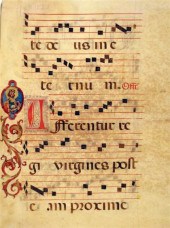 te de us in e
ter num. Off.
Afferentur re
gi virgines post
e am proxime